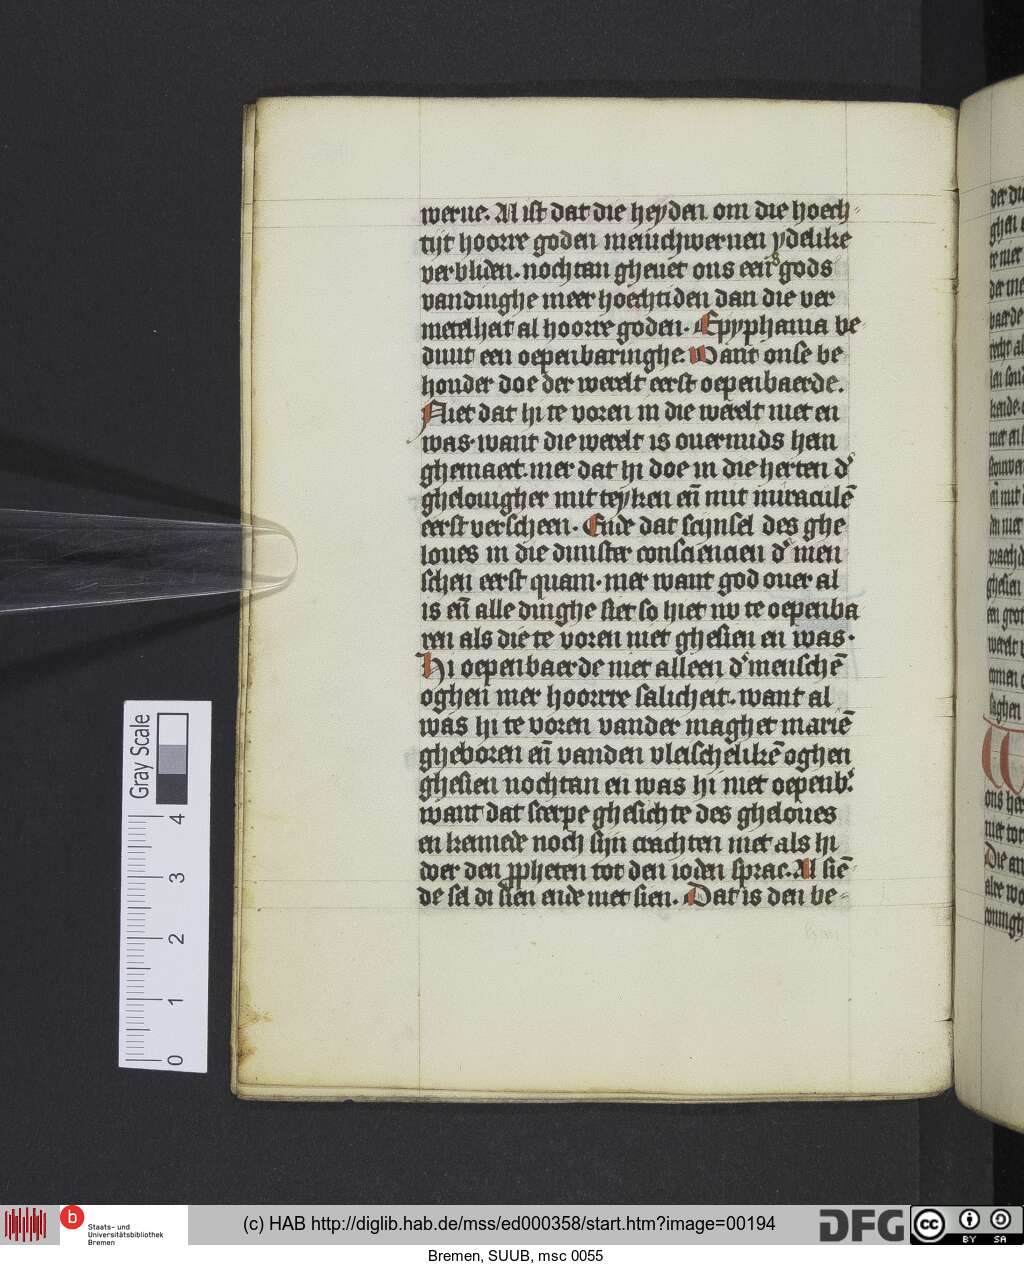 werue. Al ist dat die heyden om die hoech-
tijt hoorre goden menichwernen ydelike
verbliden. nochtan gheuet ons een gods
vandinghe meer hoechtiden dan die ver
metelheit al hoorre goden. Epyphania be-
duut een oepenbaringhe. Want onse be
houder doe der werelt eerst oepenbaerde.
Niet dat hi te voren in die werelt niet en
was. want die werelt is ouermids hem
ghemaect. mer dat hi doe in die herten d'
ghelouigher mit teyken eñ mit miraculē
eerst verscheen. Ende dat scijnsel des ghe
loues in die duuster consciencien d' men
schen eerst quam. mer want god ouer al
is eñ alle dinghe siet so hiet nv te oepenba
ren als die te voren niet ghesien en was.
Hi oepenbaerde niet alleen d' menschē
oghen mer hoorre salicheit. want al
was hi te voren vander maghet mariē
gheboren eñ vanden vleischelikē oghen
ghesien nochtan en was hi niet oepenb'.
want dat scerpe ghesichte des gheloues
en kennede noch sijn crachten niet als hi
doer den ppheten tot den ioden sprac. Al siē
de sel di sien ende niet sien. Dat is den be-
Gray Scale
0 1 2 3 4
b
Staats- und
Universitätsbibliothek
Bremen
(c) HAB http://diglib.hab.de/mss/ed000358/start.htm?image=00194
DFG
cc BY SA
Bremen, SUUB, msc 0055